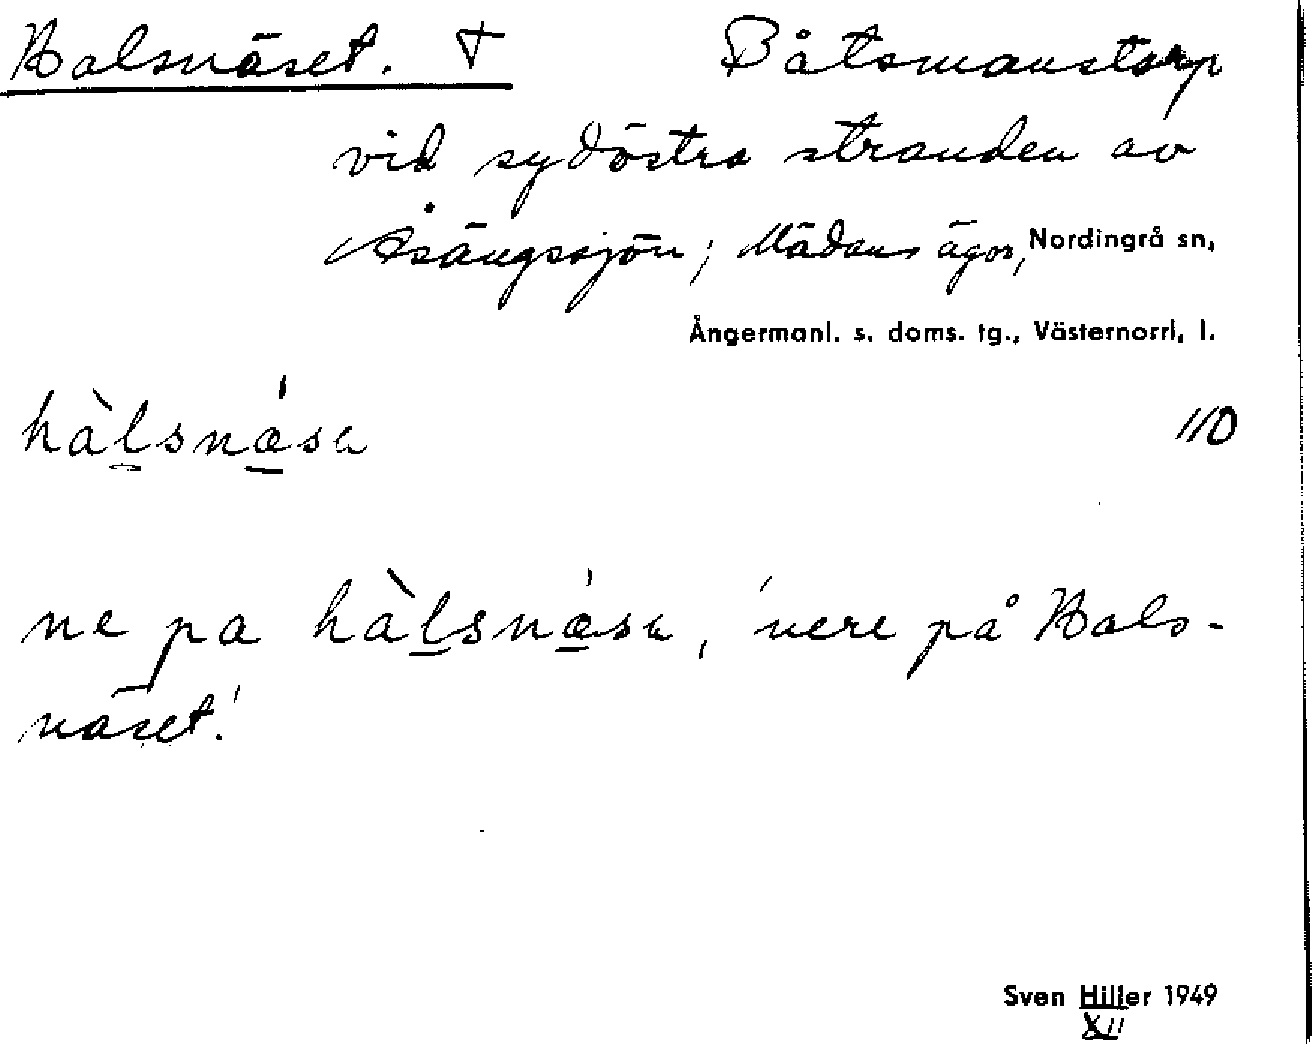 Halsnäset. † Båtsmanstorp
vid sydöstra stranden av
Åsängssjön; Mädans ägor, Nordingrå sn,
Ångermanl. s. doms. tg., Västernorrl. l.
hàlsnǽsa 110
ne pa hàlsnǽsa, 'nere på Hals-
näset.'
Sven Hiller 1949
XII